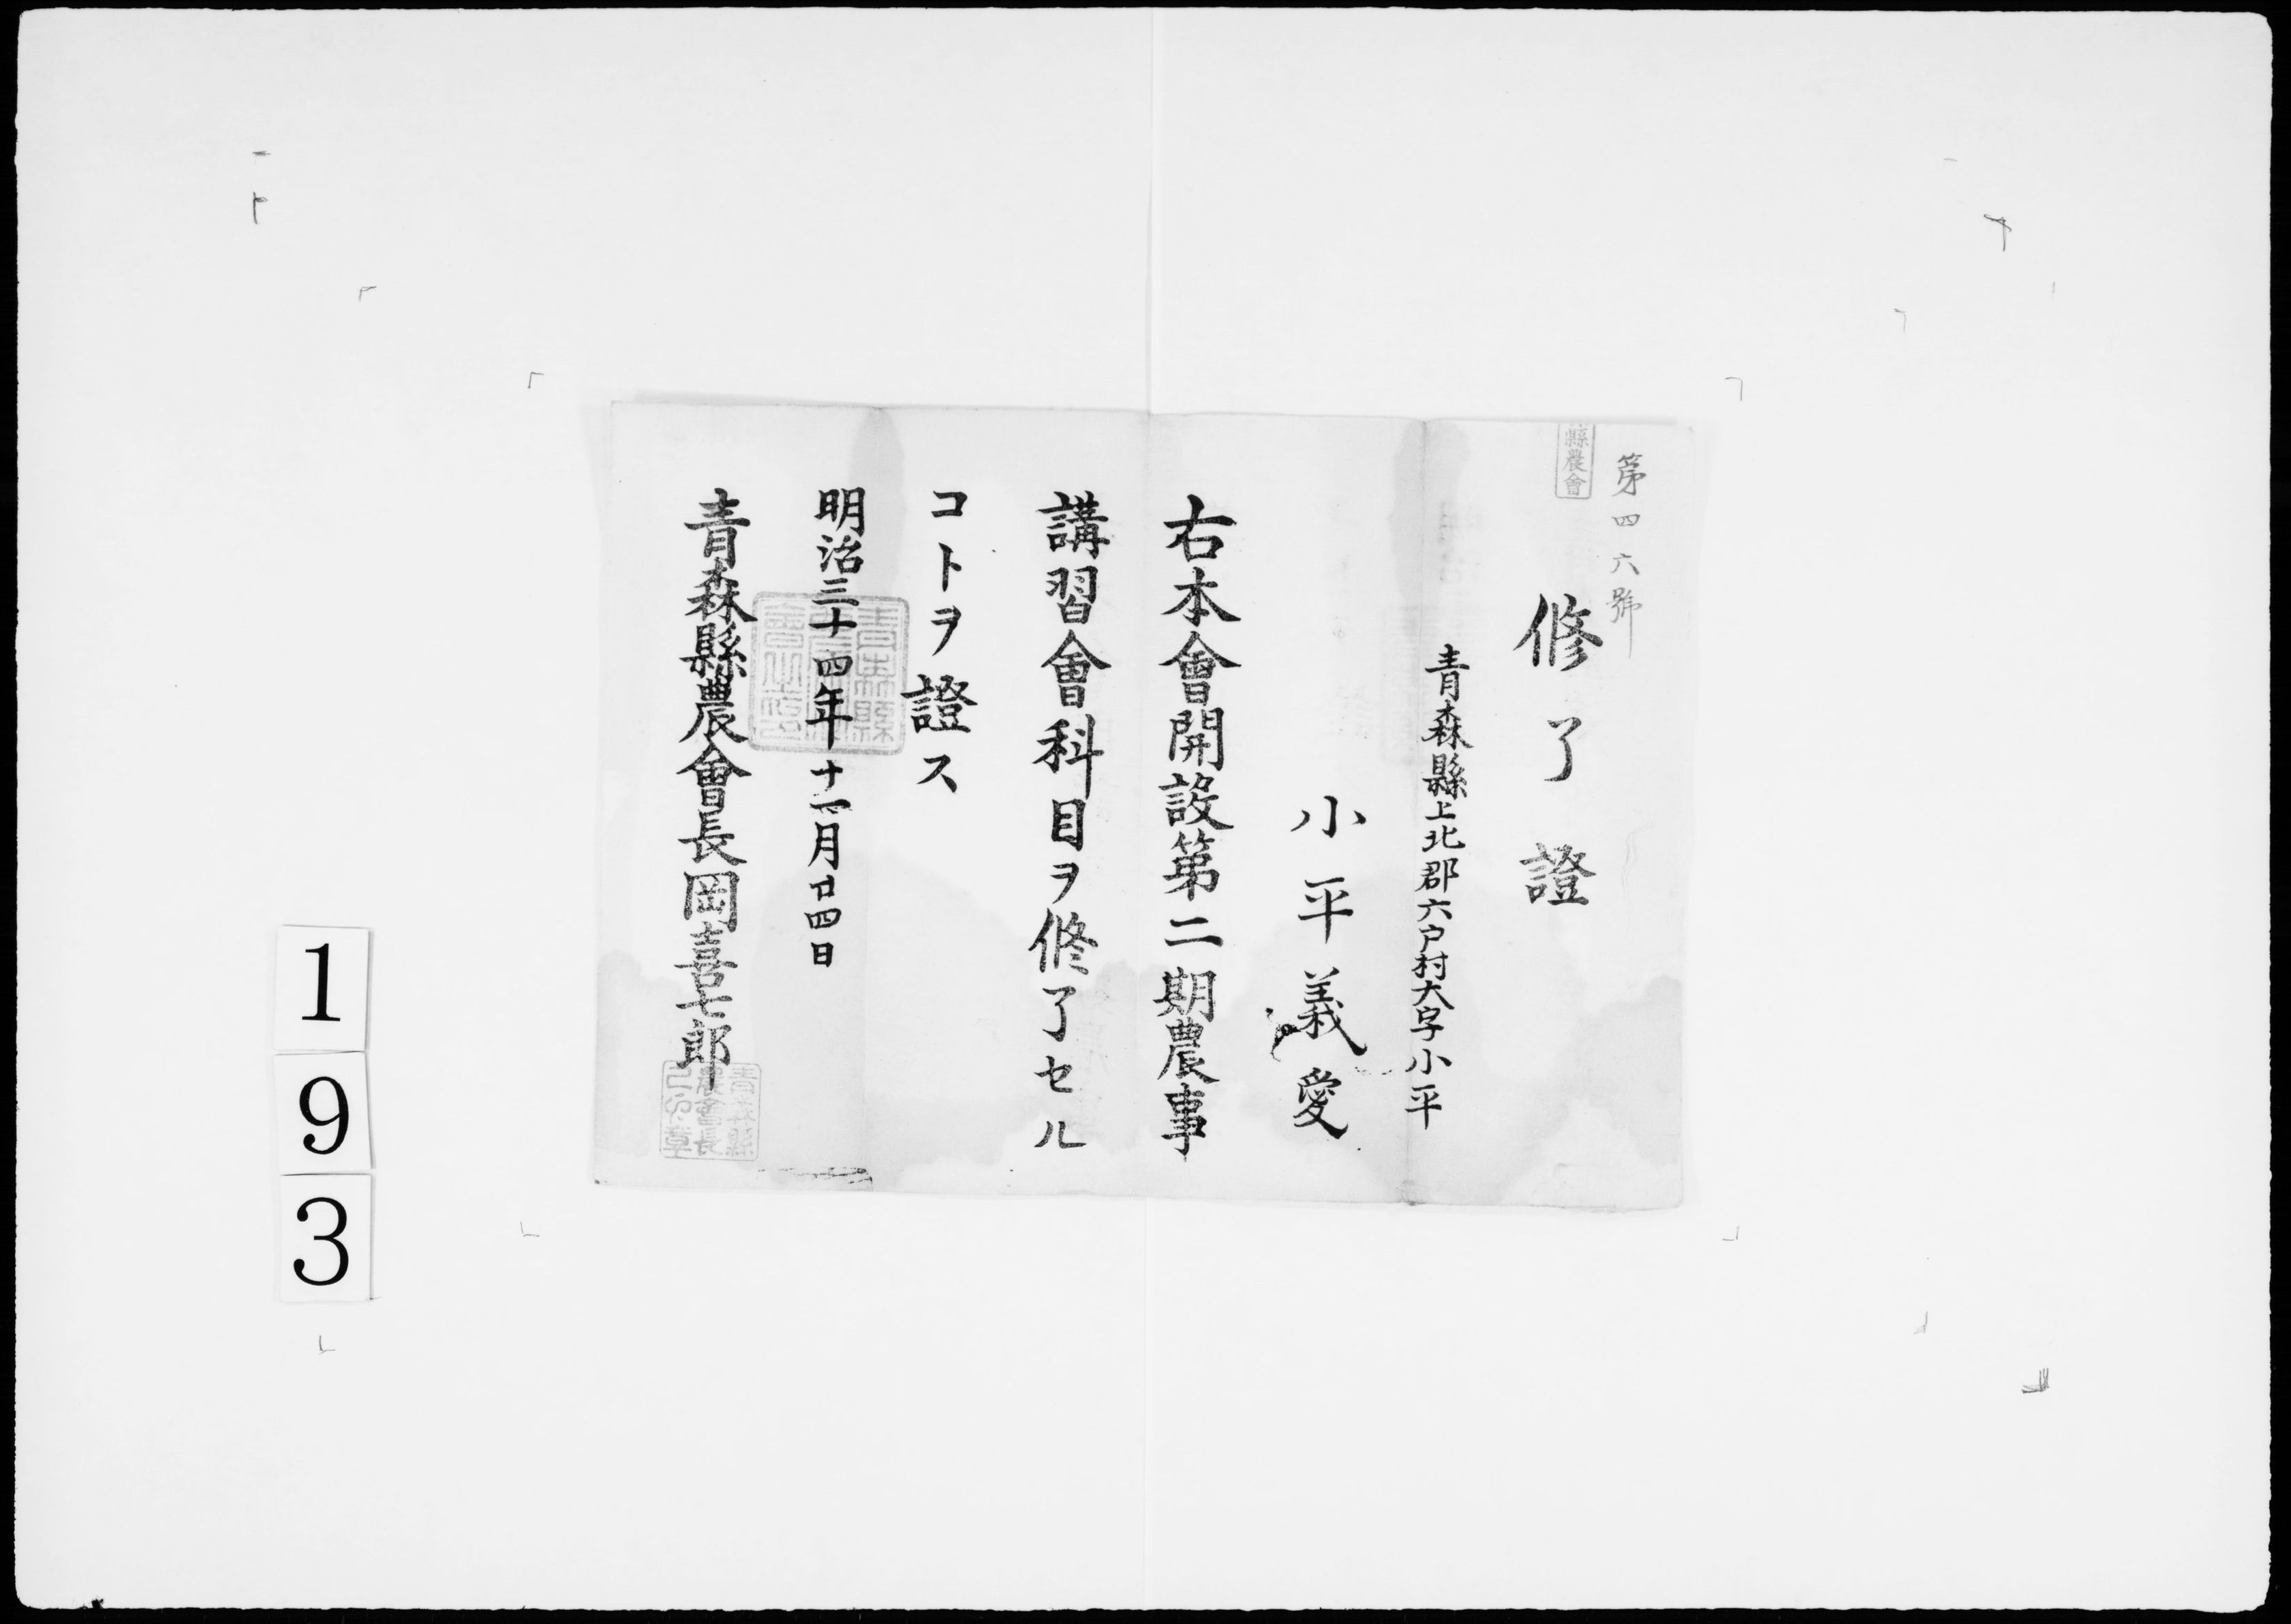 第四六號
縣農會
修了證
青森縣上北郡六戸村大字小平
小平義愛
右本會開設第二期農事
講習會科目ヲ修了セル
コトヲ證ス
明治三十四年十一月廿四日
青森縣農會長岡喜七郎
青森縣
農會長
193